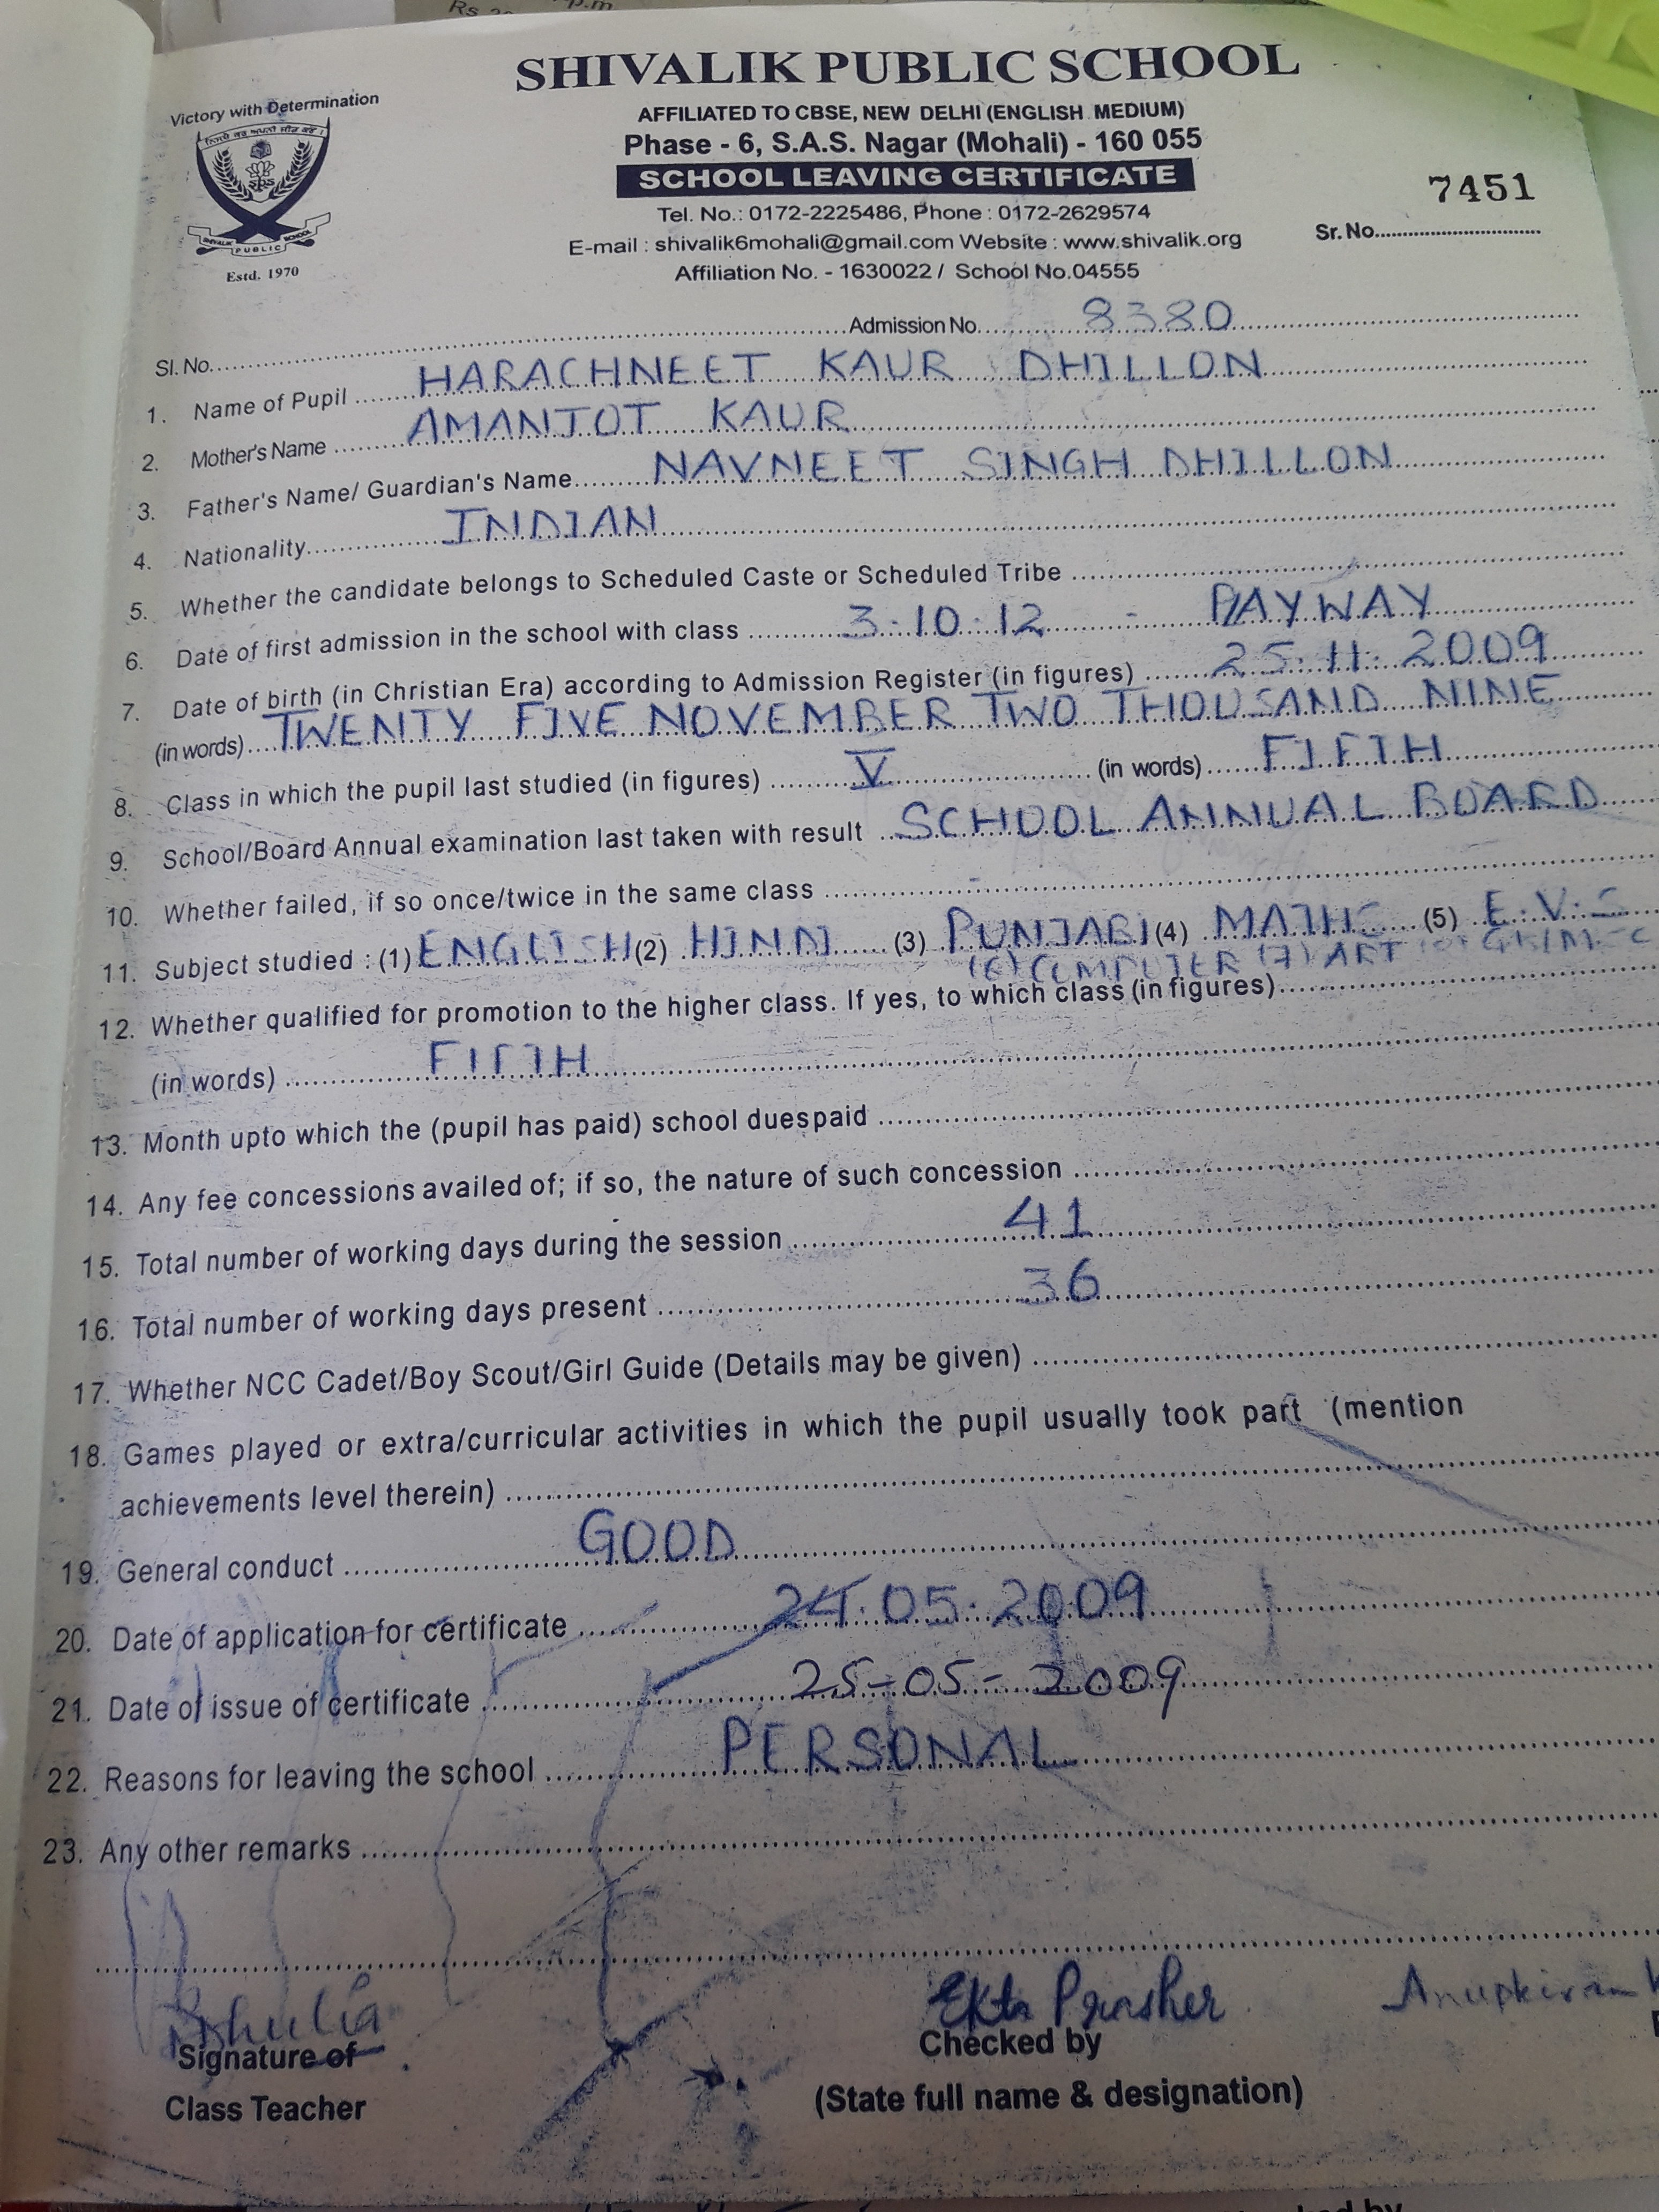 Rs p.m
SHIVALIK PUBLIC SCHOOL
Victory with Determination
AFFILIATED TO CBSE, NEW DELHI (ENGLISH MEDIUM)
Phase - 6, S.A.S. Nagar (Mohali) - 160 055
SCHOOL LEAVING CERTIFICATE
7451
SPS
SHIVALIK PUBLIC SCHOOL
Estd. 1970
Tel. No.: 0172-2225486, Phone : 0172-2629574
Sr. No.
E-mail : shivalik6mohali@gmail.com Website : www.shivalik.org
Affiliation No. - 1630022 / School No.04555
Sl. No. Admission No. 8380
1. Name of Pupil HARACHNEET KAUR DHILLON
2. Mother's Name AMANJOT KAUR
3. Father's Name/ Guardian's Name NAVNEET SINGH DHILLON
4. Nationality INDIAN
5. Whether the candidate belongs to Scheduled Caste or Scheduled Tribe
6. Date of first admission in the school with class 3.10.12 - PLAYWAY
7. Date of birth (in Christian Era) according to Admission Register (in figures) 25.11.2009
(in words) TWENTY FIVE NOVEMBER TWO THOUSAND NINE
8. Class in which the pupil last studied (in figures) V (in words) FIFTH
9. School/Board Annual examination last taken with result SCHOOL ANNUAL BOARD
10. Whether failed, if so once/twice in the same class -
11. Subject studied : (1) ENGLISH (2) HINDI (3) PUNJABI (4) MATHS (5) E.V.S
(6) COMPUTER (7) ART
12. Whether qualified for promotion to the higher class. If yes, to which class (in figures)
(in words) FIFTH
13. Month upto which the (pupil has paid) school duespaid
14. Any fee concessions availed of; if so, the nature of such concession
15. Total number of working days during the session 41
16. Total number of working days present 36
17. Whether NCC Cadet/Boy Scout/Girl Guide (Details may be given)
18. Games played or extra/curricular activities in which the pupil usually took part (mention
achievements level therein)
19. General conduct GOOD
20. Date of application for certificate 24.05.2009
21. Date of issue of certificate 25-05-2009
22. Reasons for leaving the school PERSONAL
23. Any other remarks
Ekta Prasher Anupkiran
Signature of Checked by
Class Teacher (State full name & designation)